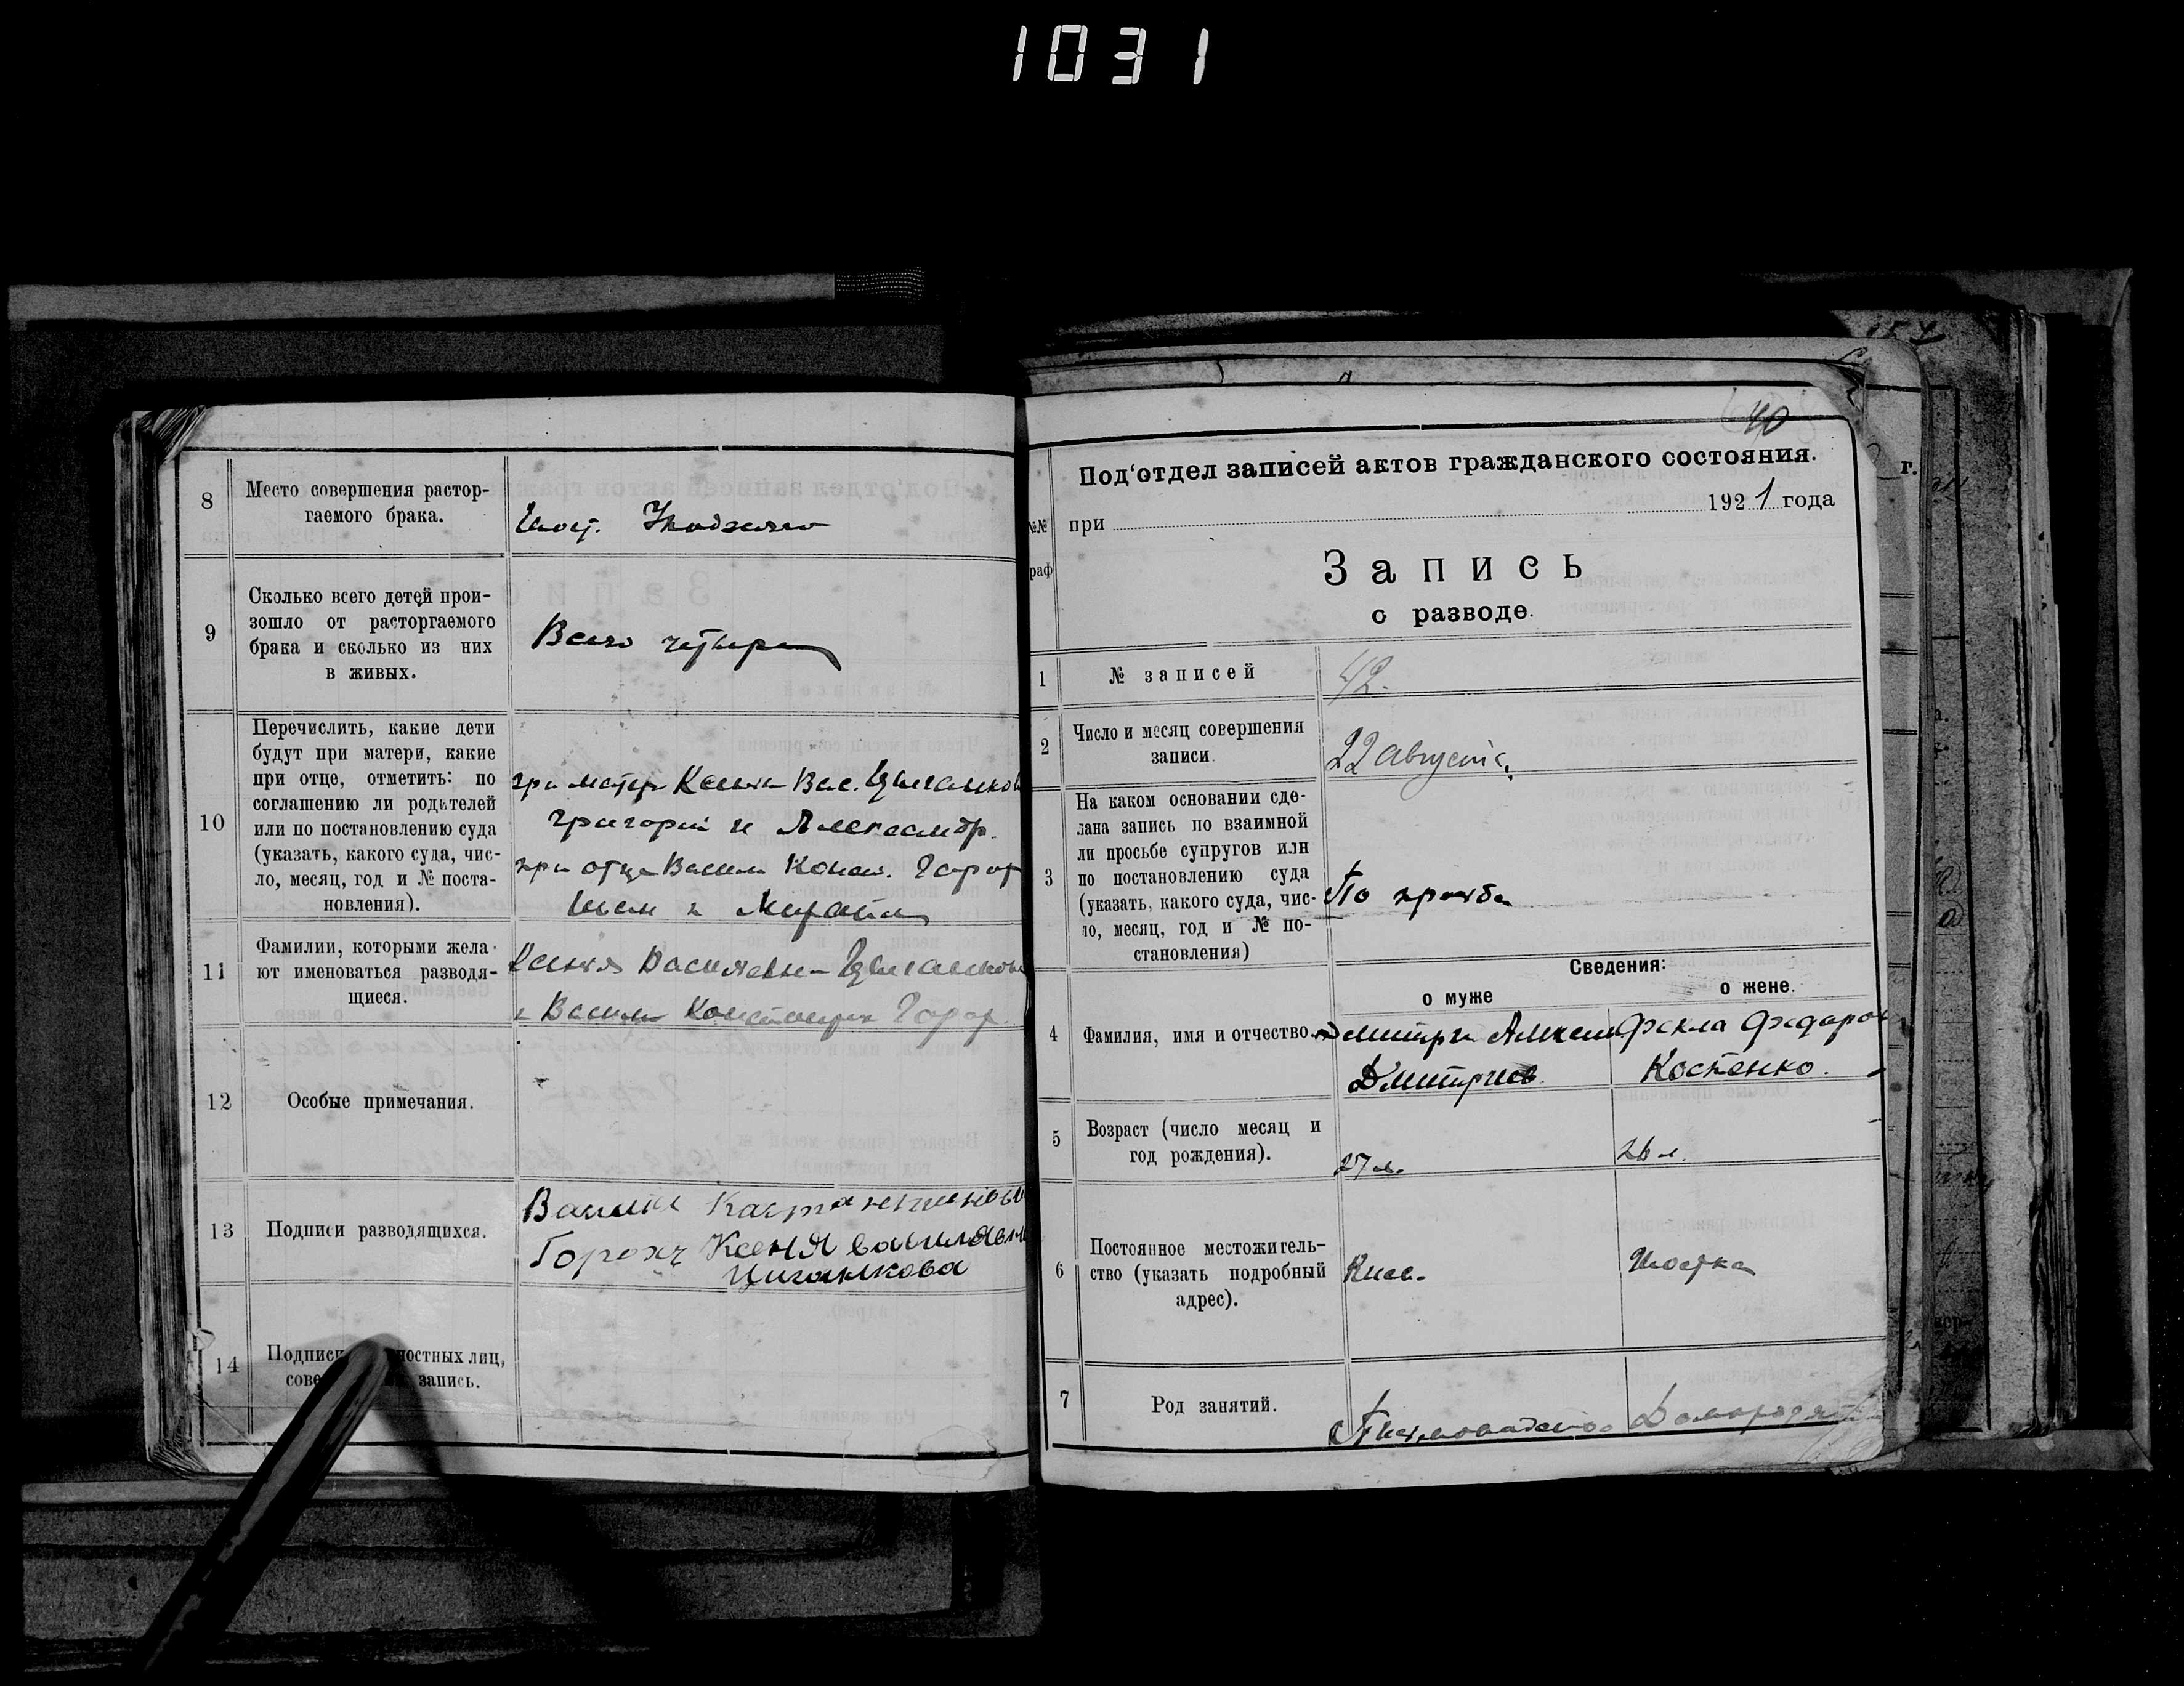 1031
8
Место совершения растор-
гаемого брака.
9
Сколько всего детей прои-
зошло от расторгаемого
брака и сколько из них
в живых.
Всего четыре
10
Перечислить, какие дети
будут при матери, какие
при отце, отметить: по
соглашению ли родителей
или по постановлению суда
(указать, какого суда, чис-
ло, месяц, год и № поста-
новления).
при матери Ксении Вас. Цыганков
Григорий и Александр.
при отце Васили Конст. Горох
11
Фамилии, которыми жела-
ют именоваться разводя-
щиеся.
Ксения Васильевн-Цыганкова
и Васили Константин Горох.
12
Особые примечания.
13
Подписи разводящихся.
Горохъ Ксения
Циганкова
14
Подписи ностных лиц,
сове запись.
40
г.
Под'отдел записей актов гражданского состояния.
при 1921 года
№№
раф
Запись
о разводе.
1
№ записей
42.
2
Число и месяц совершения
записи.
22 августа.
3
На каком основании сде-
лана запись по взаимной
ли просьбе супругов или
по постановлению суда
(указать, какого суда, чис-
ло, месяц, год и № по-
становления)
По прозбе
Сведения:
о муже
о жене.
4
Фамилия, имя и отчество.
Дмитри Алексеи
Дмитриев
Фекла Федоров
Костенко.
5
Возраст (число месяц и
год рождения).
27 л.
26 л.
6
Постоянное местожитель-
ство (указать подробный
адрес).
Киев.
Шостка
7
Род занятий.